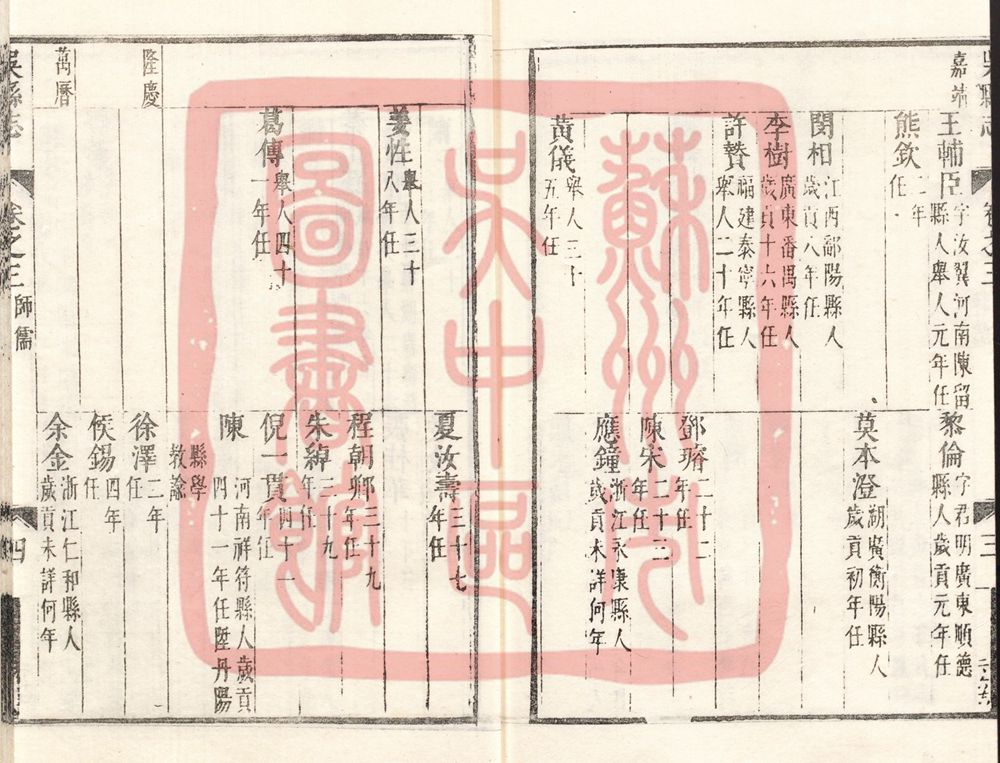 吳縣志
卷之三
三
嘉靖
王輔臣字汝翼河南陳留縣人舉人元年任
黎倫字君明廣東順德縣人歲貢元年任
熊欽二年任
莫本澄湖廣衡陽縣人歲貢初年任
閔相江西鄱陽縣人歲貢八年任
李樹廣東番禺縣人歲貢十六年任
許贊福建泰寧縣人舉人二十年任
鄧璿二十二年任
陳宋二十三年任
應鐘浙江永康縣人歲貢未詳何年
黃儀舉人三十五年任
夏汝壽三十七年任
姜性舉人三十八年任
程朝卿三十九年任
朱綽三十九年任
葛傳舉人四十一年任
倪一貫四十一年任
陳 河南祥符縣人歲貢四十一年任陞丹陽縣學教諭
隆慶
徐澤二年任
侯錫四年任
萬曆
余金浙江仁和縣人歲貢未詳何年
吳縣志
卷之三
師儒
四
蘇州市
吳中區
圖書館